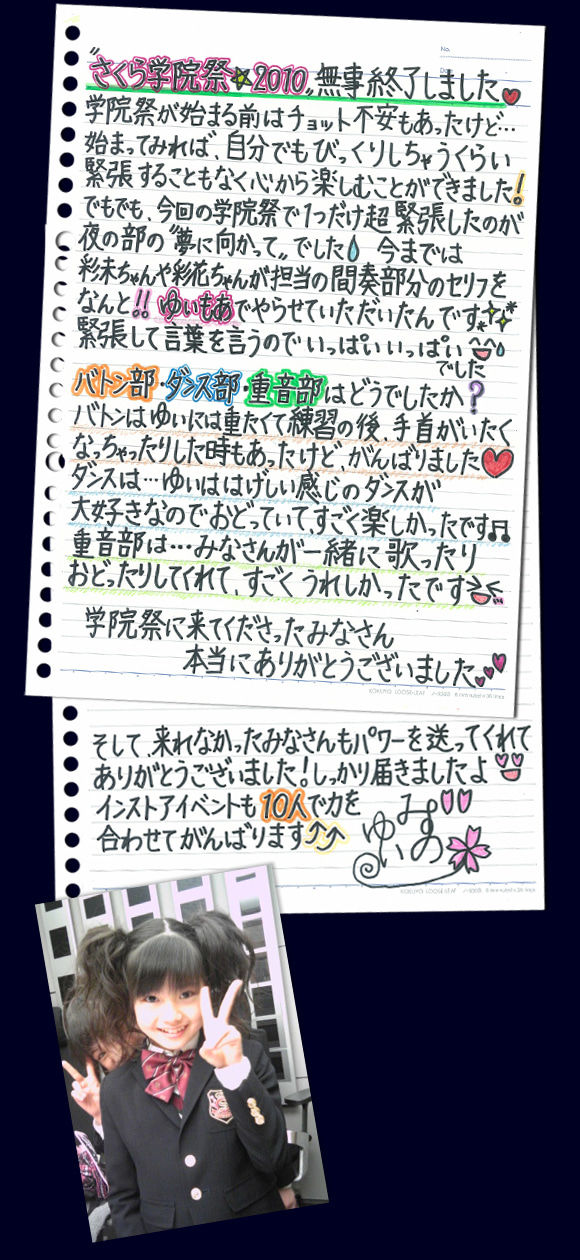 No.
"さくら学院祭☆2010"無事終了しました
学院祭が始まる前はチョット不安もあったけど…
始まってみれば、自分でもびっくりしちゃうくらい
緊張することもなく心から楽しむことができました!
でもでも、今回の学院祭で1つだけ超緊張したのが
夜の部の"夢に向かって"でした 今までは
彩未ちゃんや彩花ちゃんが担当の間奏部分のセリフを
なんと!!ゆいもあでやらせていただいたんです
緊張して言葉を言うのでいっぱいいっぱい
でした
バトン部・ダンス部・重音部はどうでしたか?
バトンはゆいには重たくて練習の後、手首がいたく
なっちゃったりした時もあったけど、がんばりました
ダンスは…ゆいははげしい感じのダンスが
大好きなのでおどっていて、すごく楽しかったです♫
重音部は…みなさんが一緒に歌ったり
おどったりしてくれて、すごくうれしかったです
学院祭に来てくださったみなさん
本当にありがとうございました
KOKUYO LOOSE-LEAF
そして、来れなかったみなさんもパワーを送ってくれて
ありがとうございました!しっかり届きましたよ
インストアイベントも10人で力を
合わせてがんばります
みずの
ゆい
KOKUYO LOOSE-LEAF